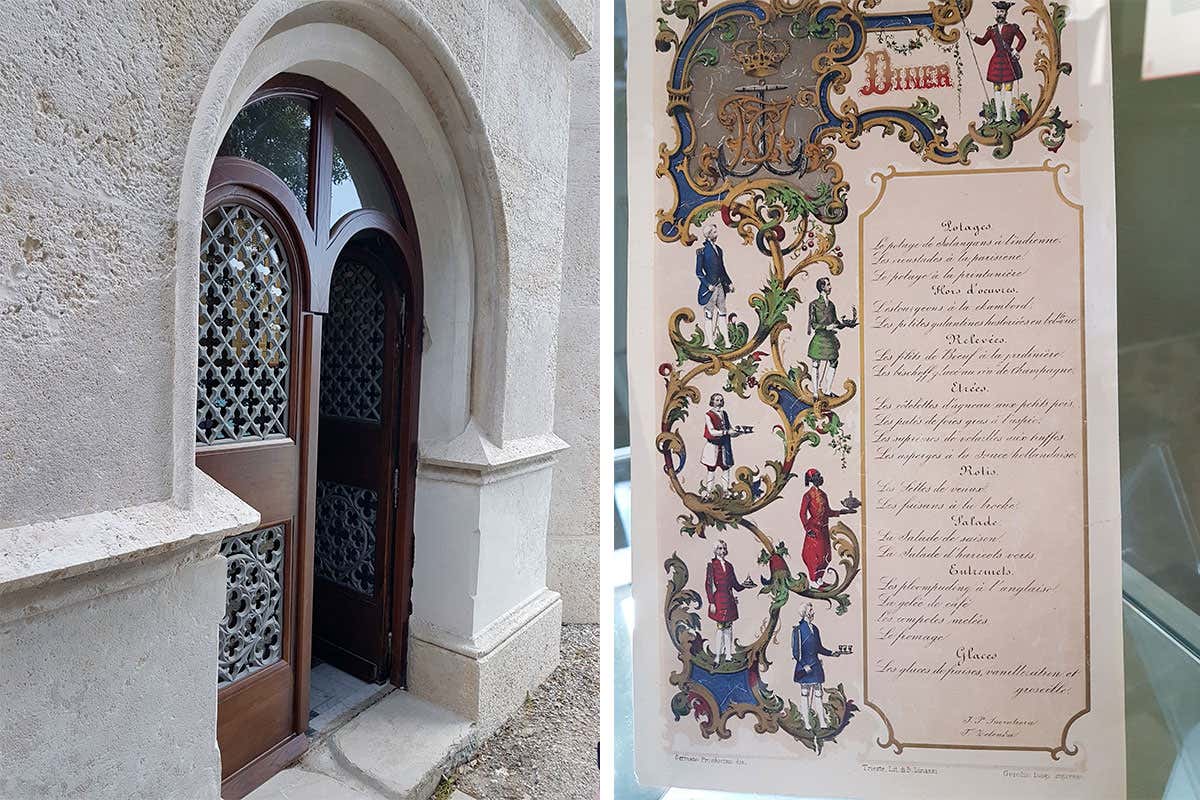 DINER
Potages.
Le potage de Salangans à l'indienne.
Les croustades à la parisiene.
Le potage à la printanière
Hors d'oeuvres.
L'estourgeons à la chambord.
Les petites galantines historiées en
Relevées.
Les filets de Boeuf à la jardinière.
Les bischoff Jaconn vin de champagne.
Etrées.
Les côtelettes d'agneau aux petits pois.
Les pates de foies gras à l'aspic.
Les suprèmes de volailles aux truffes
Les asperges à la Source hollandaise.
Rotis.
Les Selles de veaux
Les faisans à la broche.
Salade.
La Salade de saison.
La Salade d'haricots verts
Entremets.
Les ploompuding à l'anglaise
La gelée de café
Les compotes melées
Le fromage
Glaces
Les glaces de fraises, vanille, citron et
groseille.
Germano dis.
Trieste, Lit. di B. Linassi